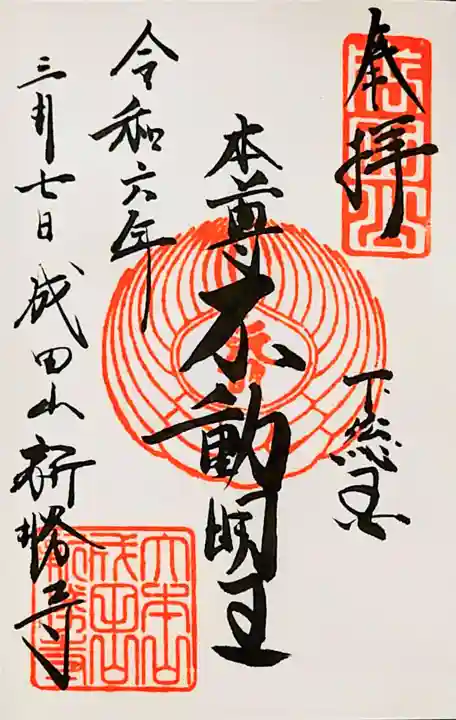 奉拝
下総国
本尊不動明王
令和六年
三月七日成田山新勝寺
大本山
成田山
新勝寺